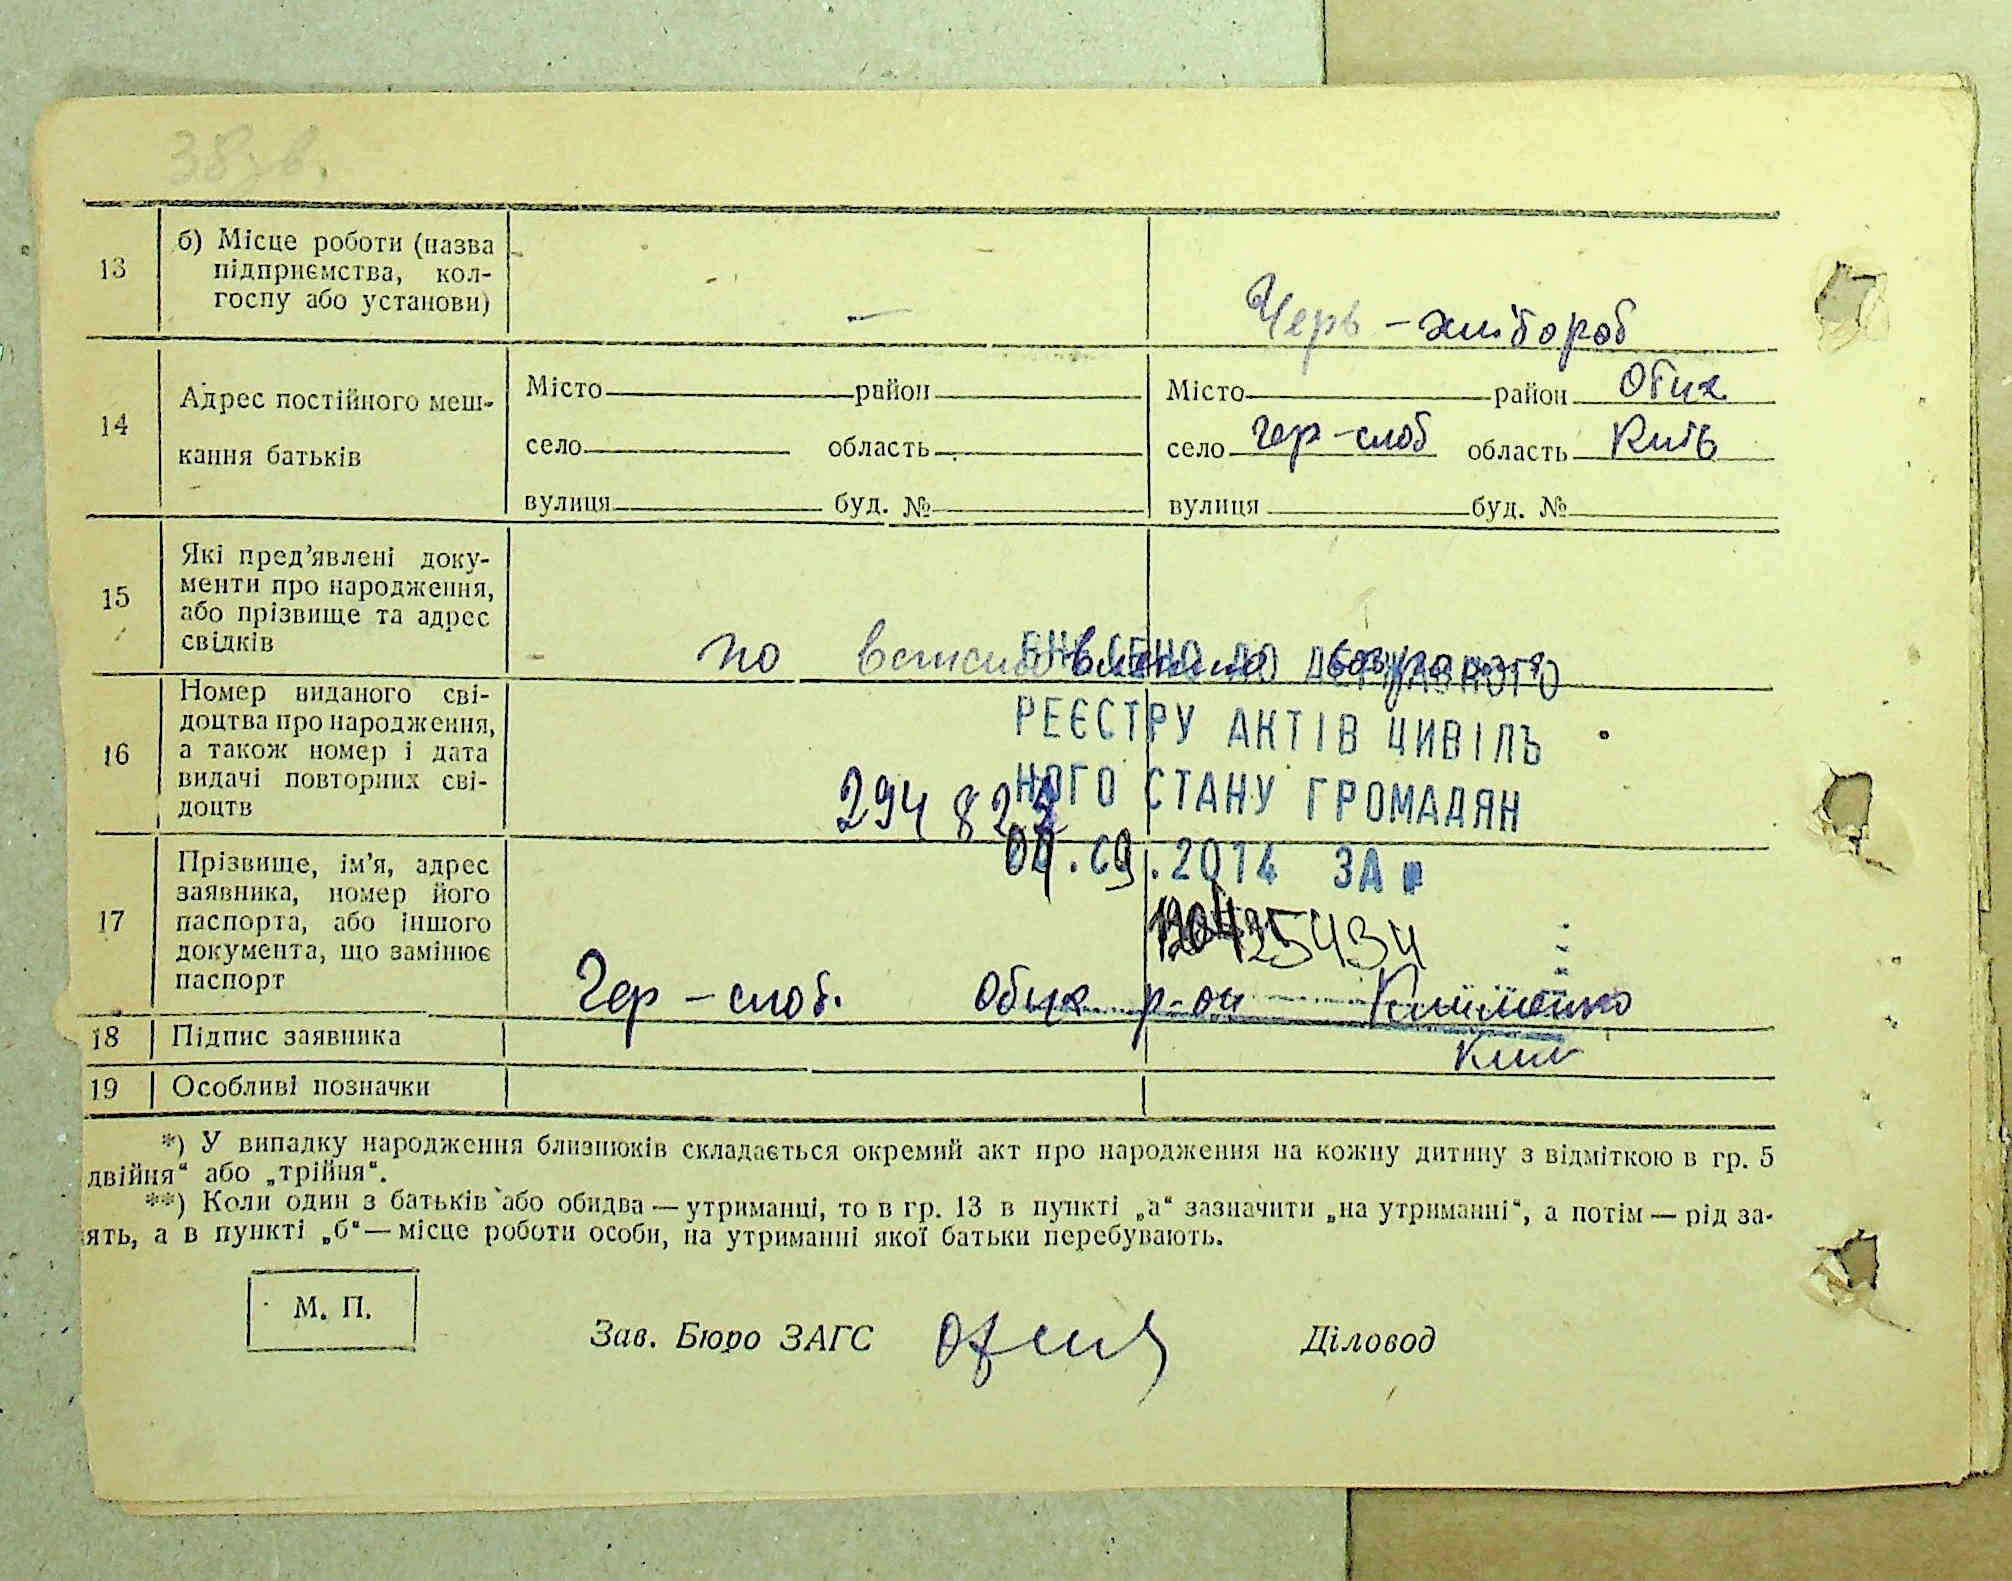 38зв.
13
б) Місце роботи (назва
підприємства, кол-
госпу або установи)
—
Черв – хлібороб
14
Адрес постійного меш-
кання батьків
Місто район
село область
вулиця буд. №
Місто район Обих
село Чер–слоб область Київ
вулиця буд. №
15
Які пред’явлені доку-
менти про народження,
або прізвище та адрес
свідків
по
ВНЕСЕНО ДО ДЕРЖАВНОГО
РЕЄСТРУ АКТІВ ЦИВІЛЬ
НОГО СТАНУ ГРОМАДЯН
04.09.2014 ЗА №
16
Номер виданого сві-
доцтва про народження,
а також номер і дата
видачі повторних сві-
доцтв
17
Прізвище, ім’я, адрес
заявника, номер його
паспорта, або іншого
документа, що замінює
паспорт
Чер – слоб. Обих р-он Клименко
18
Підпис заявника
Клим
19
Особливі позначки
*) У випадку народження близнюків складається окремий акт про народження на кожну дитину з відміткою в гр. 5
двійня“ або „трійня“.
**) Коли один з батьків або обидва — утриманці, то в гр. 13 в пункті „а“ зазначити „на утриманні“, а потім — рід за-
ять, а в пункті „б“ — місце роботи особи, на утриманні якої батьки перебувають.
М. П.
Зав. Бюро ЗАГС
Діловод